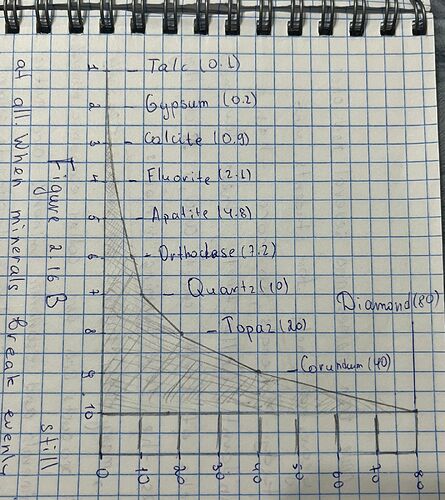 1 - Talc (0.1)
2 - Gypsum (0.2)
3 - Calcite (0.9)
4 - Fluorite (2.1)
5 - Apatite (4.8)
6 - Orthoclase (7.2)
7 - Quartz (10)
Diamond (80)
8 - Topaz (20)
9 - Corundum (40)
10
0 10 20 30 40 50 60 70 80
Figure 2.16 B
still
at all. When minerals break evenly